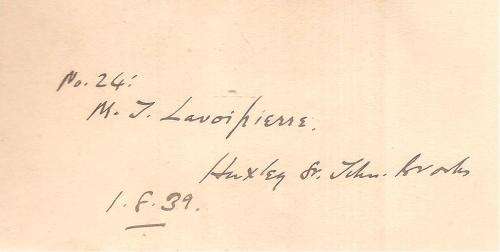 No. 24:
M. J. Lavoipierre.
Huxley St. John. Brooks
1. 8. 39.